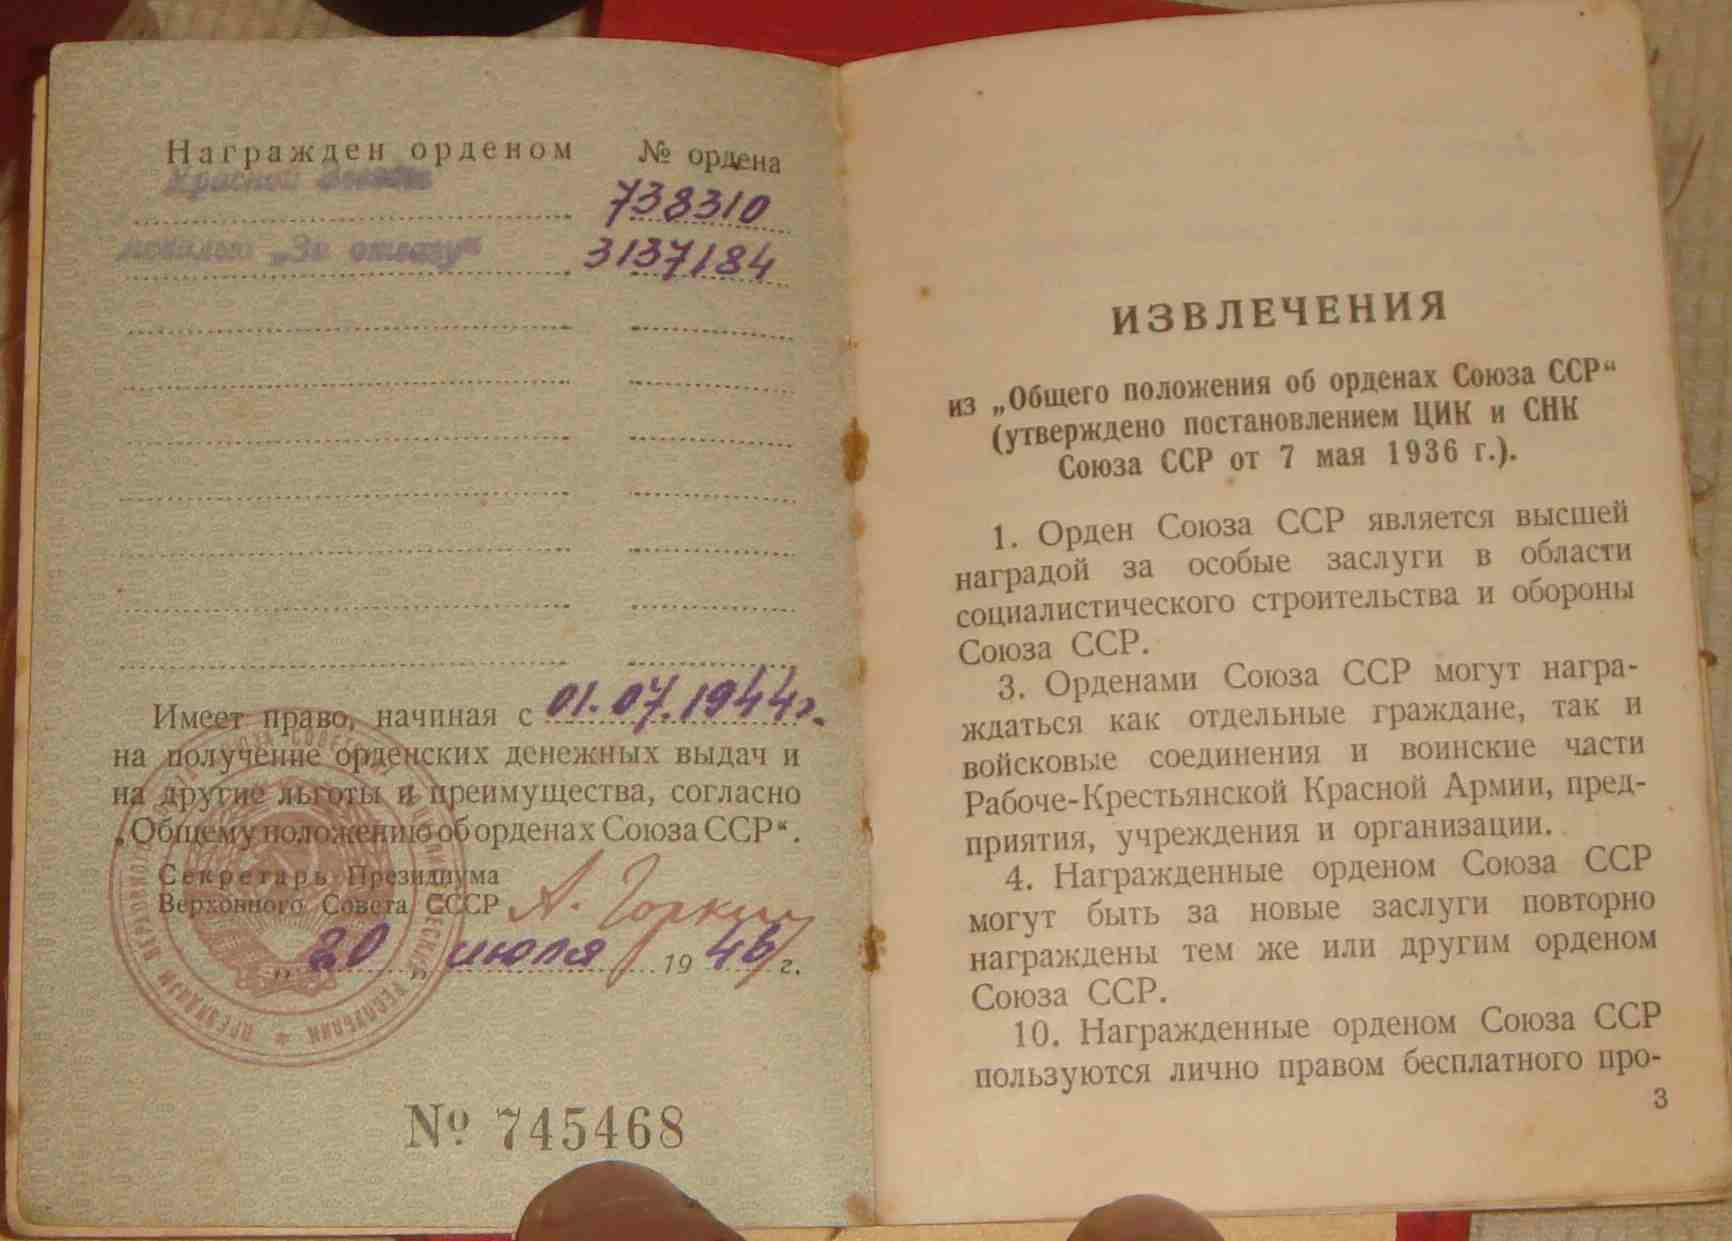 Награжден орденом № ордена
Красной Звезды 738310
медалью „За отвагу“ 3137184
Имеет право, начиная с 01.07.1944г.
на получение орденских денежных выдач и
на другие льготы и преимущества, согласно
„Общему положению об орденах Союза ССР“.
Секретарь Президиума
Верховного Совета СССР А. Горкин
„20„ июля 1946 г.
№ 745468
ИЗВЛЕЧЕНИЯ
из „Общего положения об орденах Союза ССР“
(утверждено постановлением ЦИК и СНК
Союза ССР от 7 мая 1936 г.).
1. Орден Союза ССР является высшей
наградой за особые заслуги в области
социалистического строительства и обороны
Союза ССР.
3. Орденами Союза ССР могут награ-
ждаться как отдельные граждане, так и
войсковые соединения и воинские части
Рабоче-Крестьянской Красной Армии, пред-
приятия, учреждения и организации.
4. Награжденные орденом Союза ССР
могут быть за новые заслуги повторно
награждены тем же или другим орденом
Союза ССР.
10. Награжденные орденом Союза ССР
пользуются лично правом бесплатного про-
3